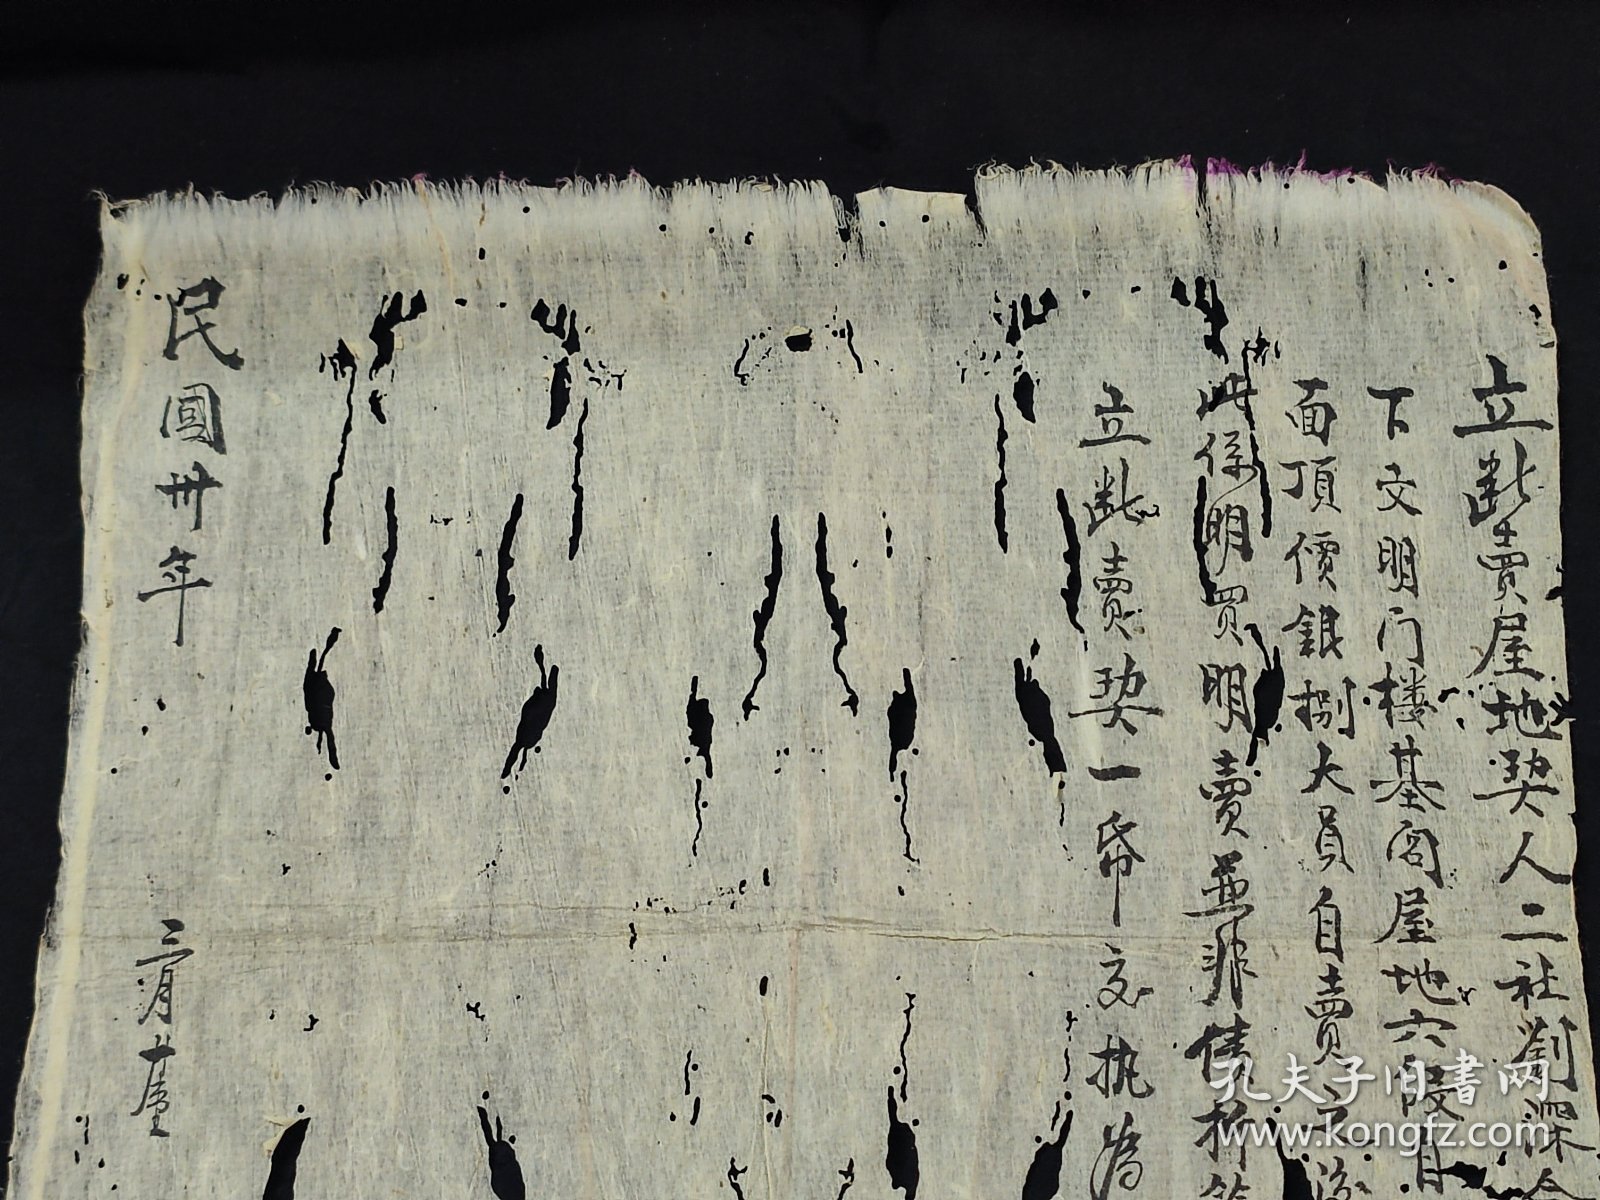 立斷賣屋地契人二社劉深
下文明门楼基囪屋地六段自
面頂價銀捌大員自賣之後
此係明買明賣並非債折
立斷賣契一帋交执為
民國卅年 三月十
孔夫子旧書网
www.kongfz.com